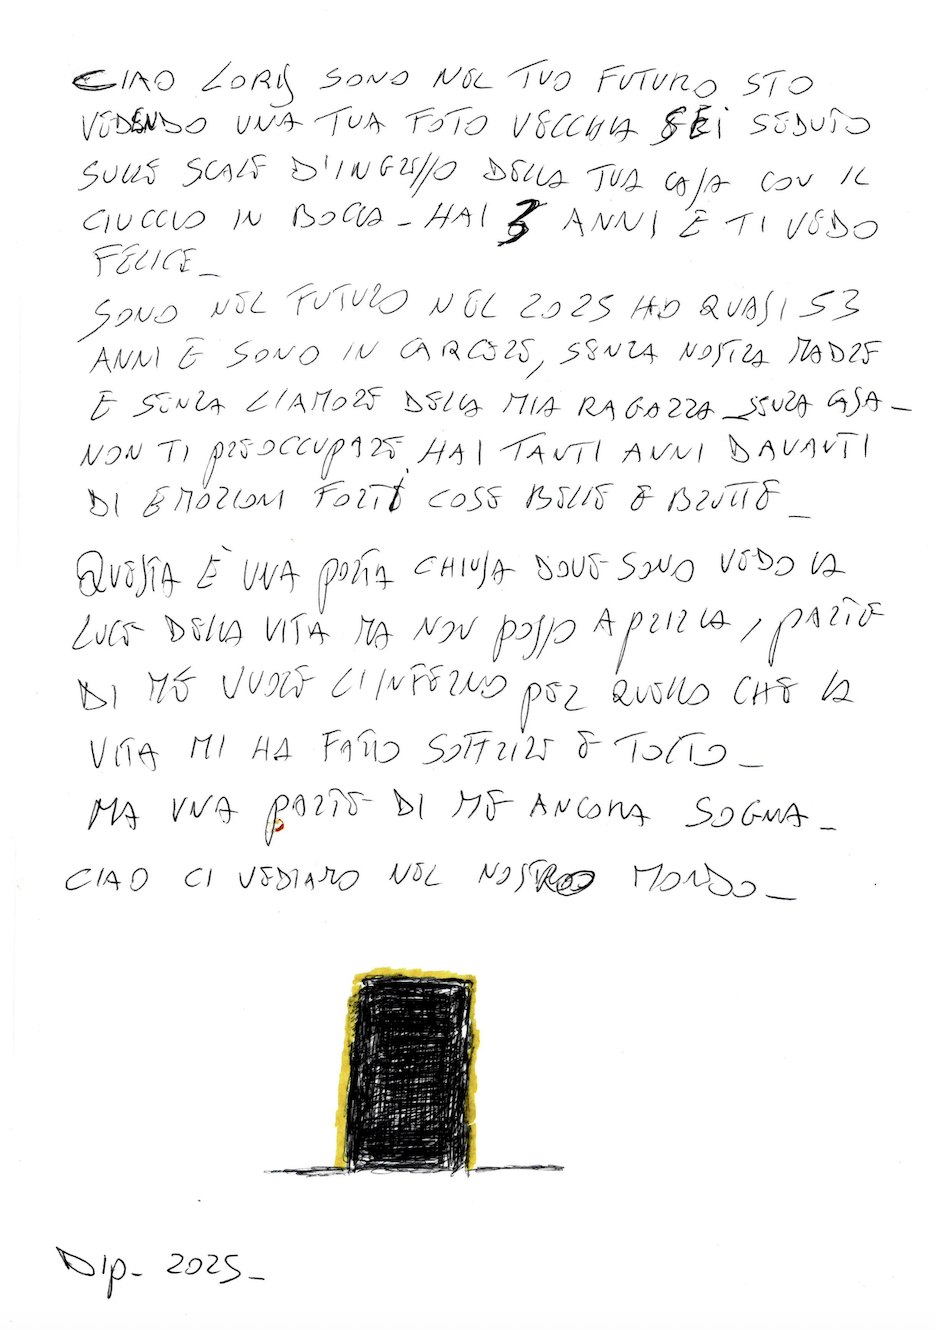 CIAO LORIS SONO NEL TUO FUTURO STO
VEDENDO UNA TUA FOTO VECCHIA SEI SEDUTO
SULLE SCALE D'INGRESSO DELLA TUA CASA CON IL
CIUCCIO IN BOCCA_ HAI 3 ANNI E TI VEDO
FELICE_
SONO NEL FUTURO NEL 2025 HO QUASI 53
ANNI E SONO IN CARCERE, SENZA NOSTRA MADRE
E SENZA L'AMORE DELLA MIA RAGAZZA_SENZA CASA_
NON TI PREOCCUPARE HAI TANTI ANNI DAVANTI
DI EMOZIONI FORTI COSE BELLE E BRUTTE_
QUESTA È UNA PORTA CHIUSA DOVE SONO VEDO LA
LUCE DELLA VITA MA NON POSSO APRIRLA, PARTE
DI ME VUOLE L'INFERNO PER QUELLO CHE LA
VITA MI HA FATTO SOFFRIRE E TOLTO_
MA UNA PARTE DI ME ANCORA SOGNA_
CIAO CI VEDIAMO NEL NOSTRO MONDO_
DIP_ 2025_